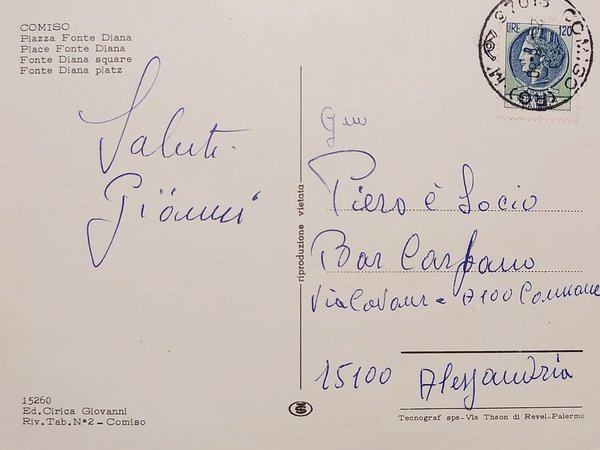 COMISO
Piazza Fonte Diana
Place Fonte Diana
Fonte Diana square
Fonte Diana platz
Saluti
Gianni
15260
Ed. Cirica Giovanni
Riv. Tab. N° 2 - Comiso
riproduzione vietata
LIRE 120
97013 COMISO
(RG)
Piero è Socio
Bar Carpano
Via Cavour
15100 Alessandria
Tecnograf spa - Via Thaon di Revel - Palermo